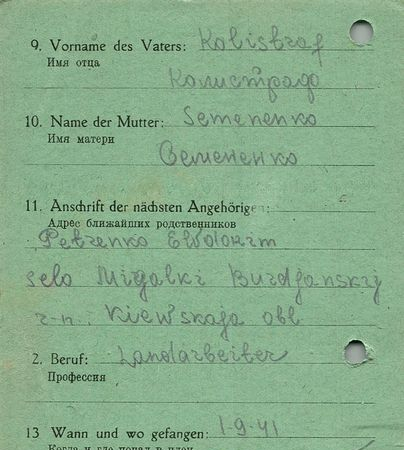 9. Vorname des Vaters: Kalistraf
Имя отца
Калистрадо
10. Name der Mutter: Semenenko
Имя матери
Семененко
11. Anschrift der nächsten Angehörigen:
Адрес ближайших родственников
Petrenko
selo Migalki Burdjanskij
r-n. Kiewskaja obl
2. Beruf: Landarbeiter
Профессия
13 Wann und wo gefangen: 1-9-41
Когда и где попал в плен